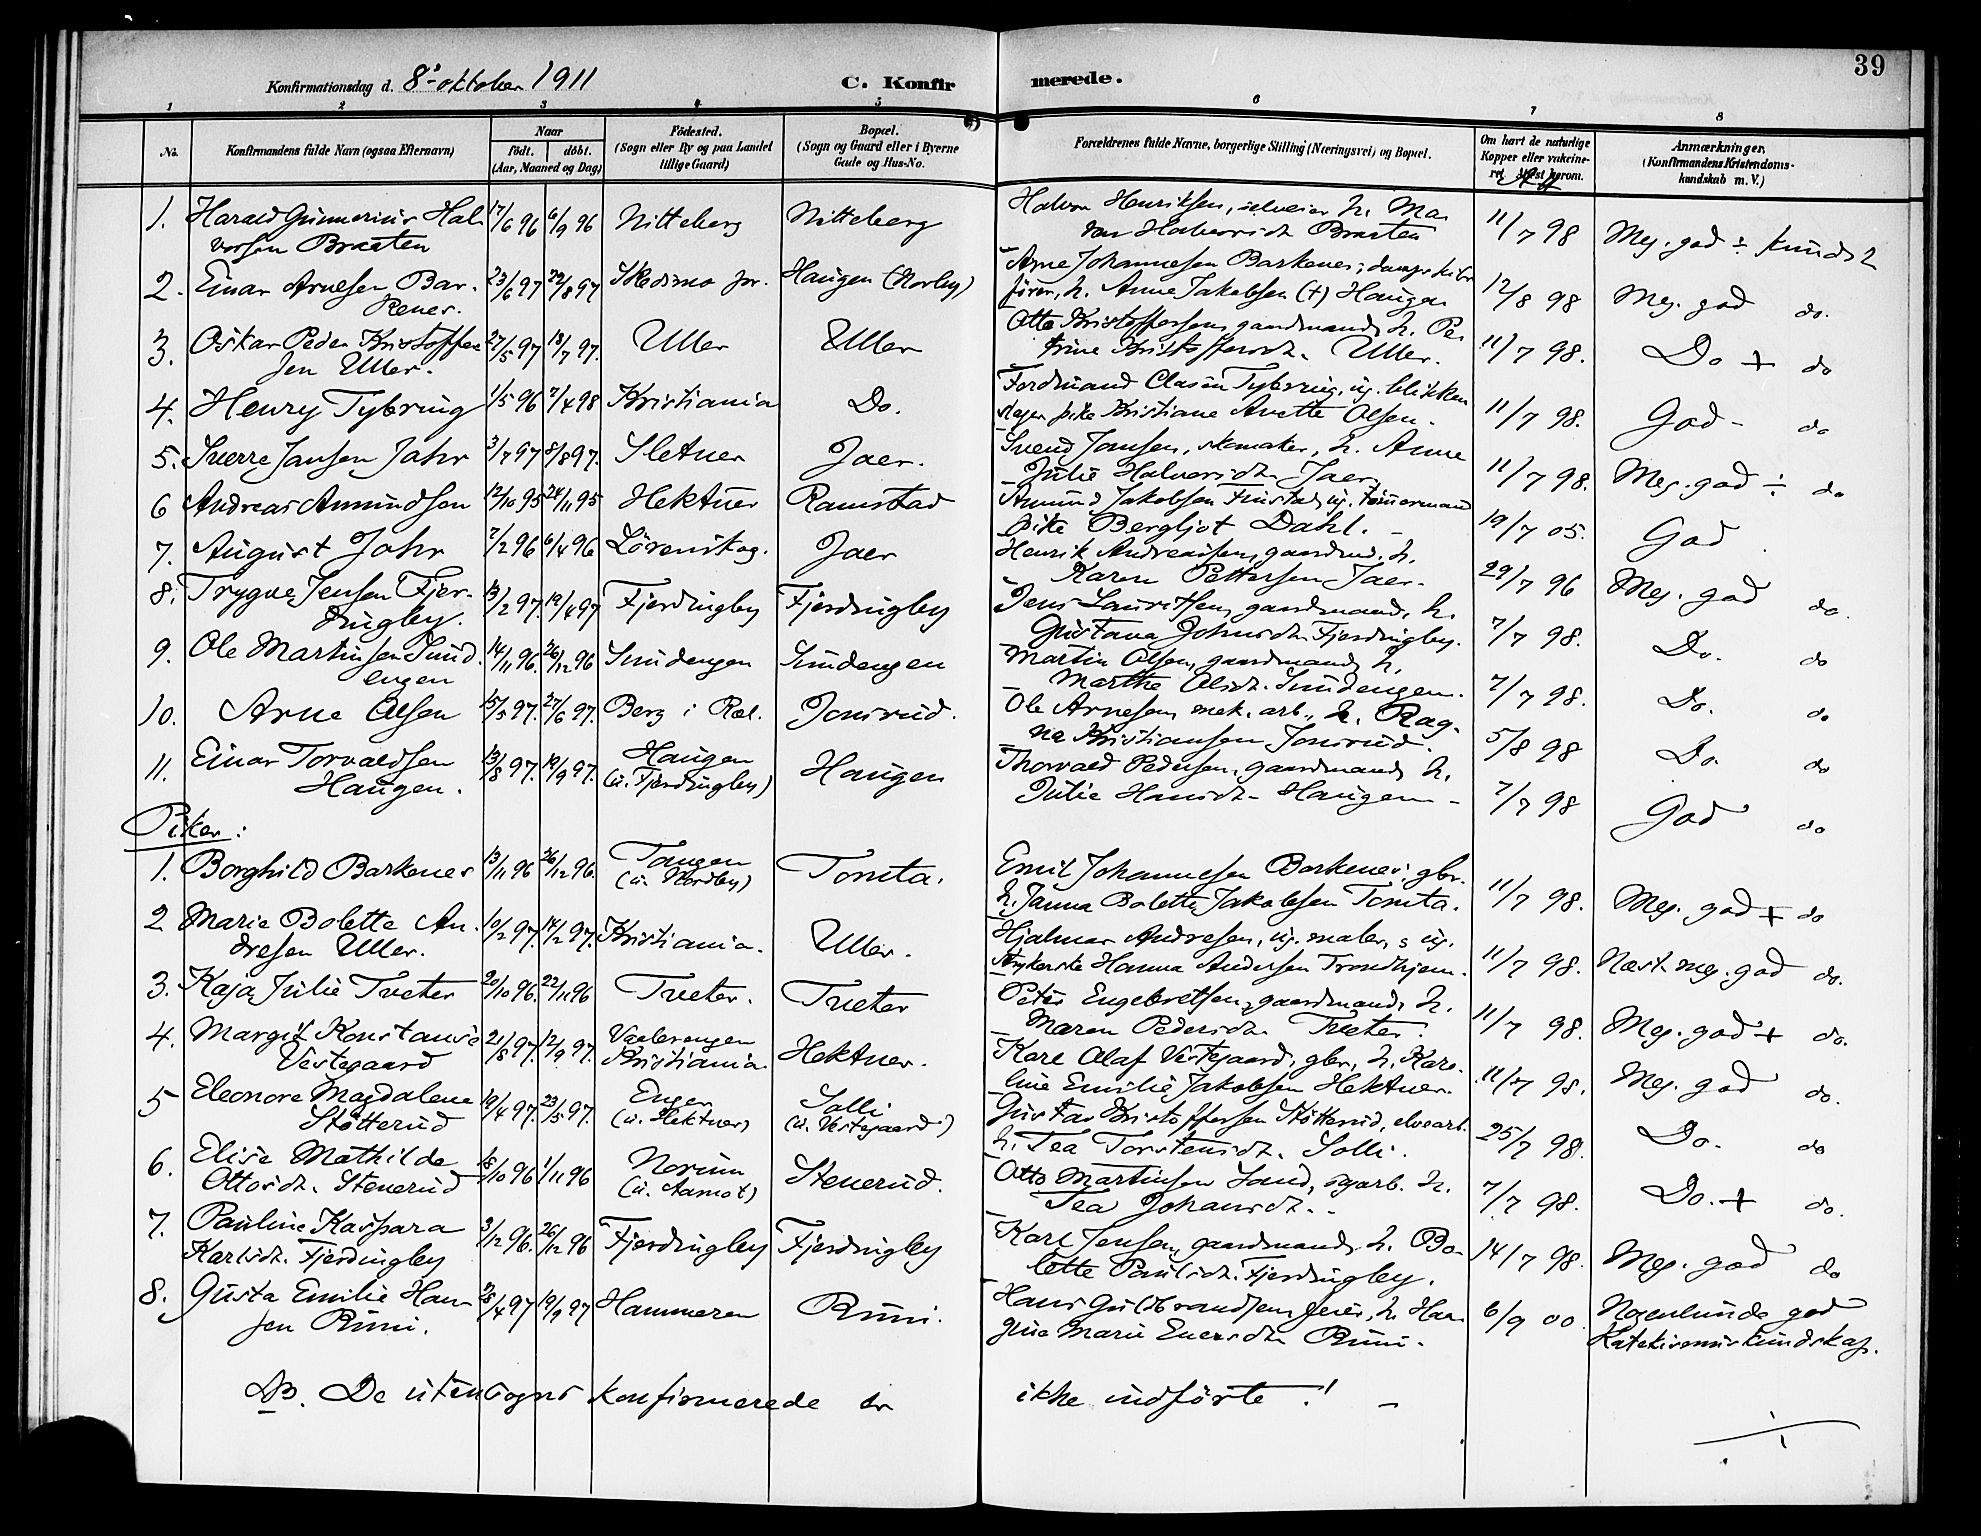 39
Konfirmationsdag d. 8' oktober 1911
C. Konfirmerede.
1 2 3 4 5 6 7 8
No.
Konfirmandens fulde Navn (ogsaa Efternavn)
Naar
født. døbt.
(Aar, Maaned og Dag)
Fødested.
(Sogn eller By og paa Landet
tillige Gaard)
Bopæl.
(Sogn og Gaard eller i Byerne
Gade og Hus-No.
Forældrenes fulde Navne, borgerlige Stilling (Næringsvei) og Bopæl.
Om havt de naturlige
Kopper eller vakcine-
ret. Attest herom.
Anmærkninger.
(Konfirmandens Kristendoms-
kundskab m. V.)
1. Harald Gunnerius Hal- 17/6 96 6/9 96 Nitteberg Nitteberg Halvor Henriksen, selveier h. Ma- 11/7 98 Meg. god ÷ kundsk
vorsen Braaten Halvorsdt. Braaten
2. Einar Arnesen Bar- 23/6 97 22/8 97 Skedsmo pr. Haugen (Norby) Arne Johannesen Barkenes, dampskibs 12/8 98 Meg. god do.
kenes. fører, h. Anna Jakobsen (+) Haugen
3. Oskar Peder Kristoffer 27/5 97 18/7 97. Uller Uller Otto Kristoffersen gaardmand h. Pe- 11/7 98. Do + do
sen Uller. trine Kristoffersdt. Uller.
4. Henry Tybring 1/5 96 7/4 98 Kristiania Do. Ferdinand Clasen Tybring, ug. blikken 11/7 98. God - do
slager pike Kristiane Anette Olsen.
5. Sverre Jansen Jahr 3/7 97 8/8 97. Sletner Jaer. Svend Jansen, skomaker, h. Anne 11/7 98. Meg. god ÷ do
Julie Halvorsdt. Jaer
6 Andreas Amundsen 12/10 95 24/11 95 Hektner Ramstad Amund Jakobsen Finstad ug. tømmermand 19/7 05. God
pike Bergljot Dahl. -
7. August Jahr 7/2 96 6/4 96 Lørenskog. Jaer Henrik Andreassen, gaardmd. h. 29/7 96 Meg. god do.
Karen Pettersen Jaer.
8. Trygve Jensen Fjer- 13/2 97. 19/4 97 Fjerdingby Fjerdingby Jens Lauritsen, gaardmand, h. 7/7 98. Do. do
dingby. Gustava Johnsdt. Fjerdingby.
9. Ole Martinsen Sund 14/11 96. 26/12 96 Sundengen Sundengen Martin Olsen, gaardmand, h. 7/7 98. Do. do
engen Marthe Olsdt. Sundengen.
10. Arne Olsen 15/5 97. 27/6 97. Berg i Ræl. Jonsrud. Ole Arnesen, mek. arb., h. Rag- 5/8 98 Do. do
na Kristiansen Jonsrud.
11. Einar Torvaldsen 13/8 97. 19/9 97. Haugen Haugen Thorvald Pedersen, gaardmand, h. 7/7 98 God do
Haugen. (u. Fjerdingby) Julie Hansdt. Haugen -
Piker:
1. Borghild Barkenes 13/11 96 26/12 96. Tangen Tomta. Emil Johannesen Barkenes, gbr. 11/7 98. Meg. god + do
(u. Nordby) h. Janna Bolette Jakobsen Tomta.
2 Marie Bolette An- 10/2 97. 14/2 97. Kristiania. Uller. Hjalmar Andresen, ug. maler, s ug. 11/7 98. Næst. meg. god do.
dresen Uller. strykerske Hanna Andersen Trondhjem.
3. Kaja Julie Tveter 20/10 96. 22/11 96 Tveter. Tveter Peter Engebretsen, gaardmand, h. 11/7 98. Meg. god + do.
Maren Pedersdt. Tveter.
4. Margit Konstanse 21/8 97. 12/9 97. Vaalerengen Hektner. Karl Olaf Vestegaard, gbr, h. Karo- 11/7 98. Meg. god do.
Vestegaard Kristiania line Emilie Jakobsen Hektner.
5 Eleonore Magdalene 19/4 97. 23/5 97. Enger Solli Gustav Kristoffersen Støtterud, elvearb. 25/7 98. Do. do
Støtterud (u. Hektner) (u. Vestegaard) h. Tea Torstensdt. Solli.
6. Elise Mathilde 18/10 96 1/11 96 Norum Stenerud. Otto Martinsen Sand, sagarb. h. 7/7 98. Do. + do.
Ottosdt. Stenerud (u. Aamot) Tea Johansdt. -
7. Pauline Kaspara 3/12 96. 26/12 96 Fjerdingby Fjerdingby Karl Jensen, gaardmand, h. Bo- 14/7 98. Meg. god do
Karlsdt. Fjerdingby lette Paulsdt. Fjerdingby.
8. Gusta Emilie Han- 28/4 97 19/9 97 Hammeren Runi. Hans Gulbrandsen, h. Han- 6/9 00. Nogenlunde god
sen Runi. gine Marie Evensdt. Runi. Katekismuskundskap.
NB. De utensogns konfirmerede er ikke indførte! -